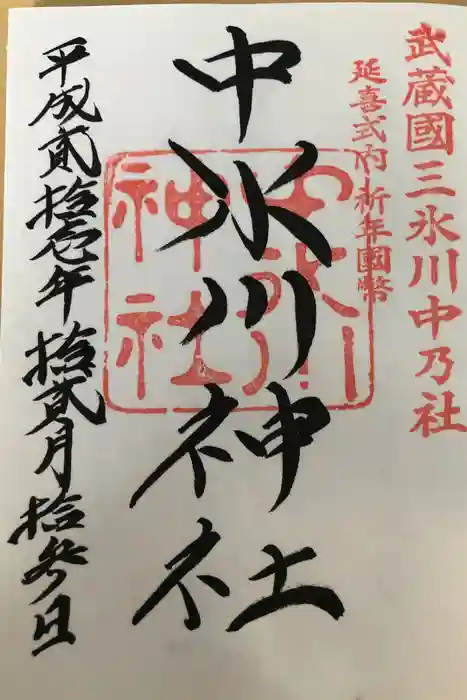 武蔵國三氷川中乃社
延喜式内祈年國幣
中氷川神社
中氷川神社
平成貳拾壱年拾貳月拾参日